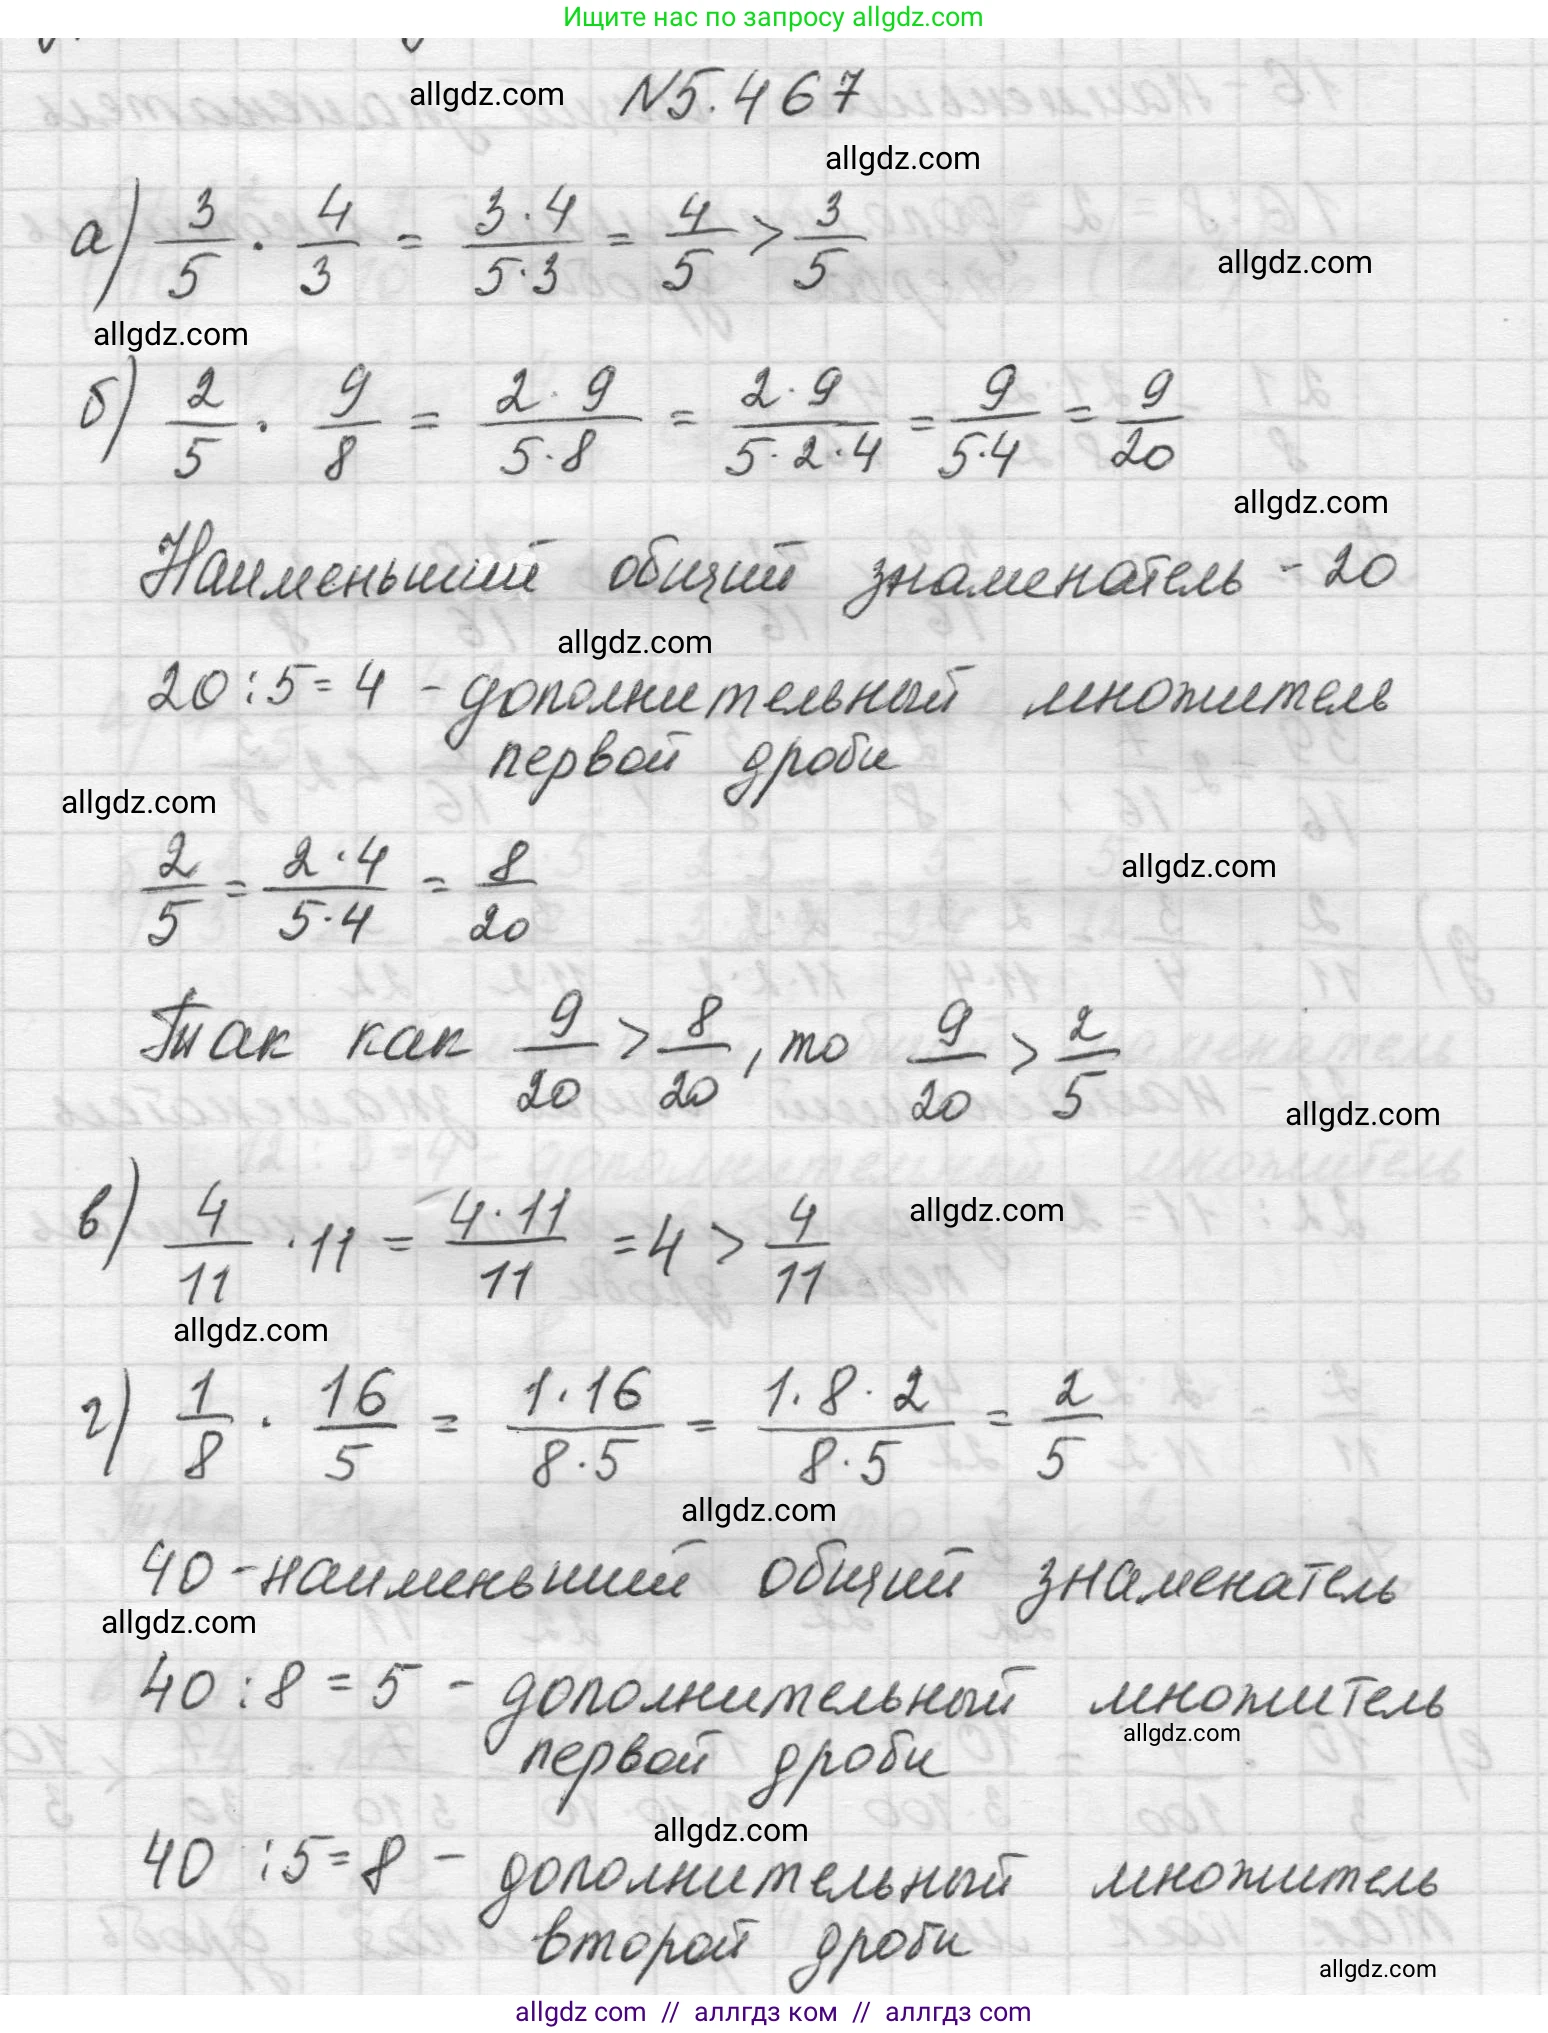 Ищите нас по запросу allgdz.com
allgdz.com
N5.467
allgdz.com
а) 3/5 · 4/3 = 3·4/5·3 = 4/5 > 3/5
allgdz.com
allgdz.com
б) 2/5 · 9/8 = 2·9/5·8 = 2·9/5·2·4 = 9/5·4 = 9/20
allgdz.com
Наименьший общий знаменатель - 20
allgdz.com
20:5=4 - дополнительный множитель
первой дроби
allgdz.com
allgdz.com
2/5 = 2·4/5·4 = 8/20
Так как 9/20 > 8/20, то 9/20 > 2/5
allgdz.com
в) 4/11 · 11 = 4·11/11 = 4 > 4/11
allgdz.com
allgdz.com
г) 1/8 · 16/5 = 1·16/8·5 = 1·8·2/8·5 = 2/5
allgdz.com
40 - наименьший общий знаменатель
allgdz.com
40:8=5 - дополнительный множитель
allgdz.com
первой дроби
allgdz.com
40:5=8 - дополнительный множитель
второй дроби
allgdz.com
allgdz com // аллгдз ком // аллгдз com